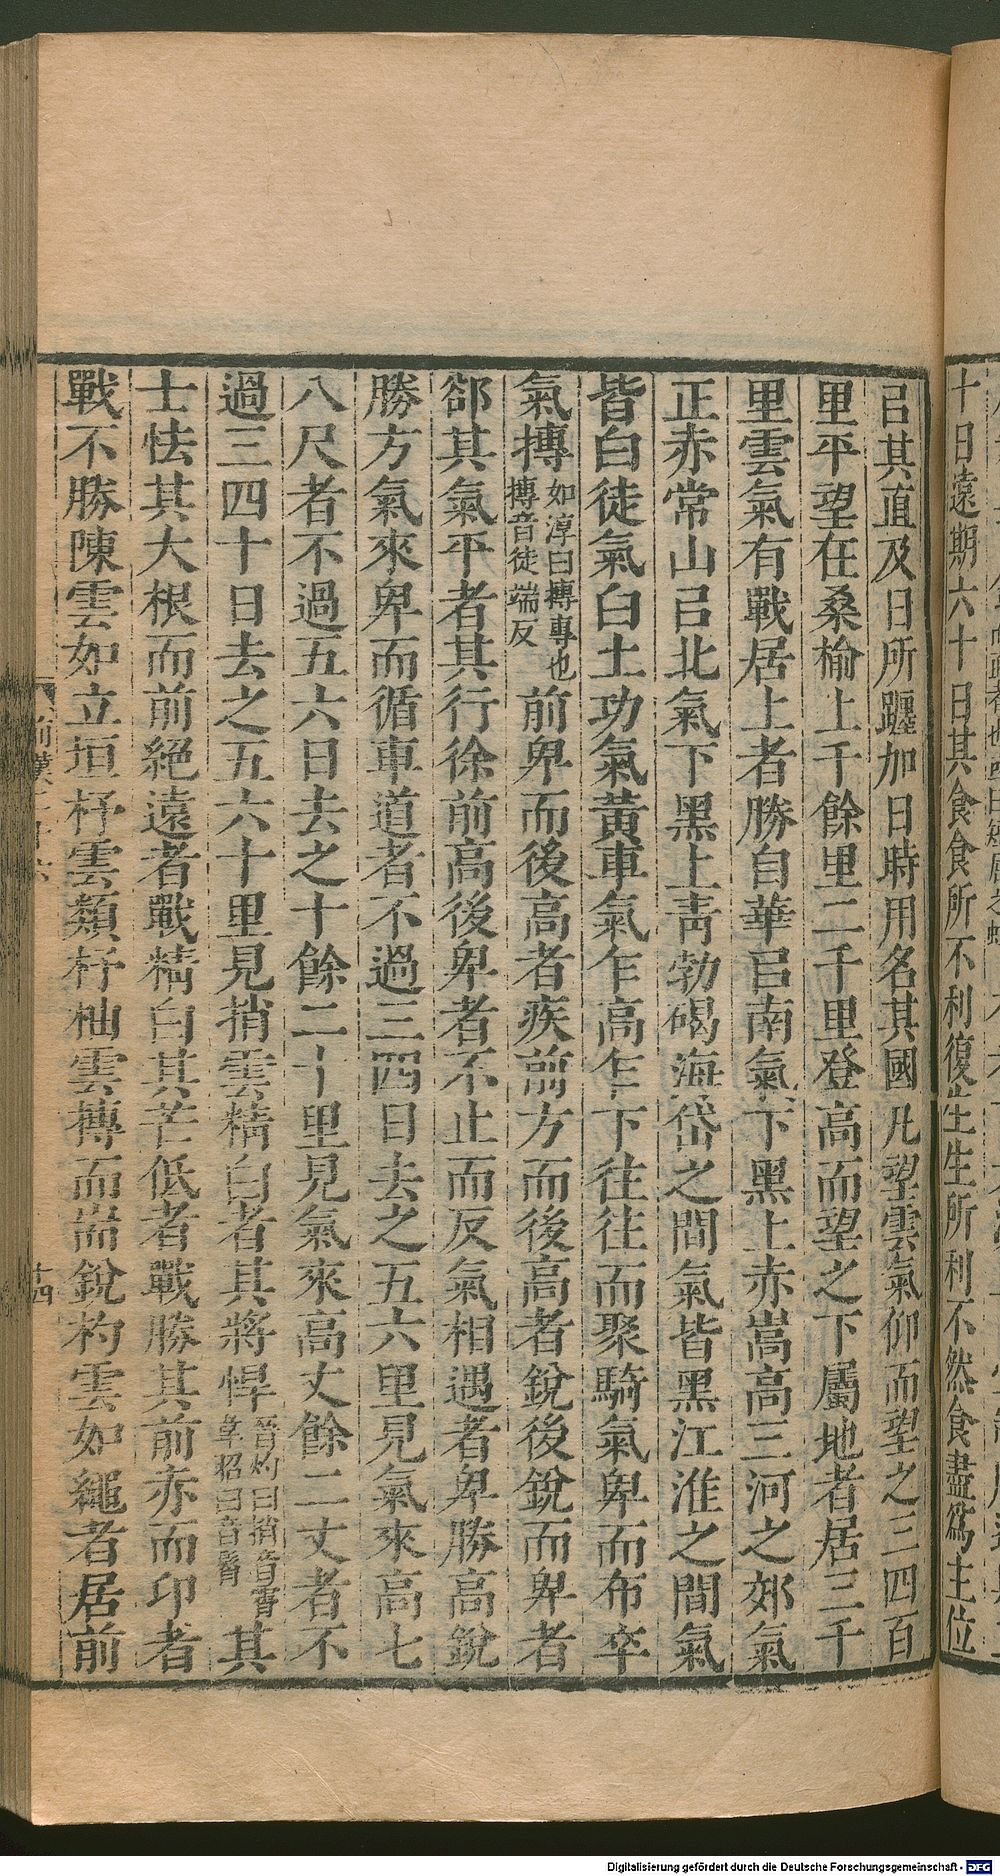 十日遠期六十日其食食所不利復生生所利不然食盡爲主位
㠯其直及日所𨇠加日時用名其國凡望雲氣仰而望之三四百
里平望在桑榆上千餘里二千里登高而望之下屬地者居三千
里雲氣有戰居上者勝自華㠯南氣下黑上赤嵩高三河之郊氣
正赤常山㠯北氣下黑上青勃碣海岱之間氣皆黑江淮之間氣
皆白徒氣白土功氣黃車氣乍高乍下往往而聚騎氣卑而布卒
氣摶
如淳曰摶專也
摶音徒端反
前卑而後高者疾前方而後高者銳後銳而卑者
郤其氣平者其行徐前高後卑者不止而反氣相遇者卑勝高銳
勝方氣來卑而循車道者不過三四日去之五六里見氣來高七
八尺者不過五六日去之十餘二十里見氣來高丈餘二丈者不
過三四十日去之五六十里見捎雲精白者其將悍
晉灼曰捎音霄
韋昭曰音髾
其
士怯其大根而前絕遠者戰精白其芒低者戰勝其前赤而印者
戰不勝陳雲如立垣杼雲類杼柚雲摶而耑銳杓雲如繩者居前
前漢
十四
Digitalisierung gefördert durch die Deutsche Forschungsgemeinschaft - DFG